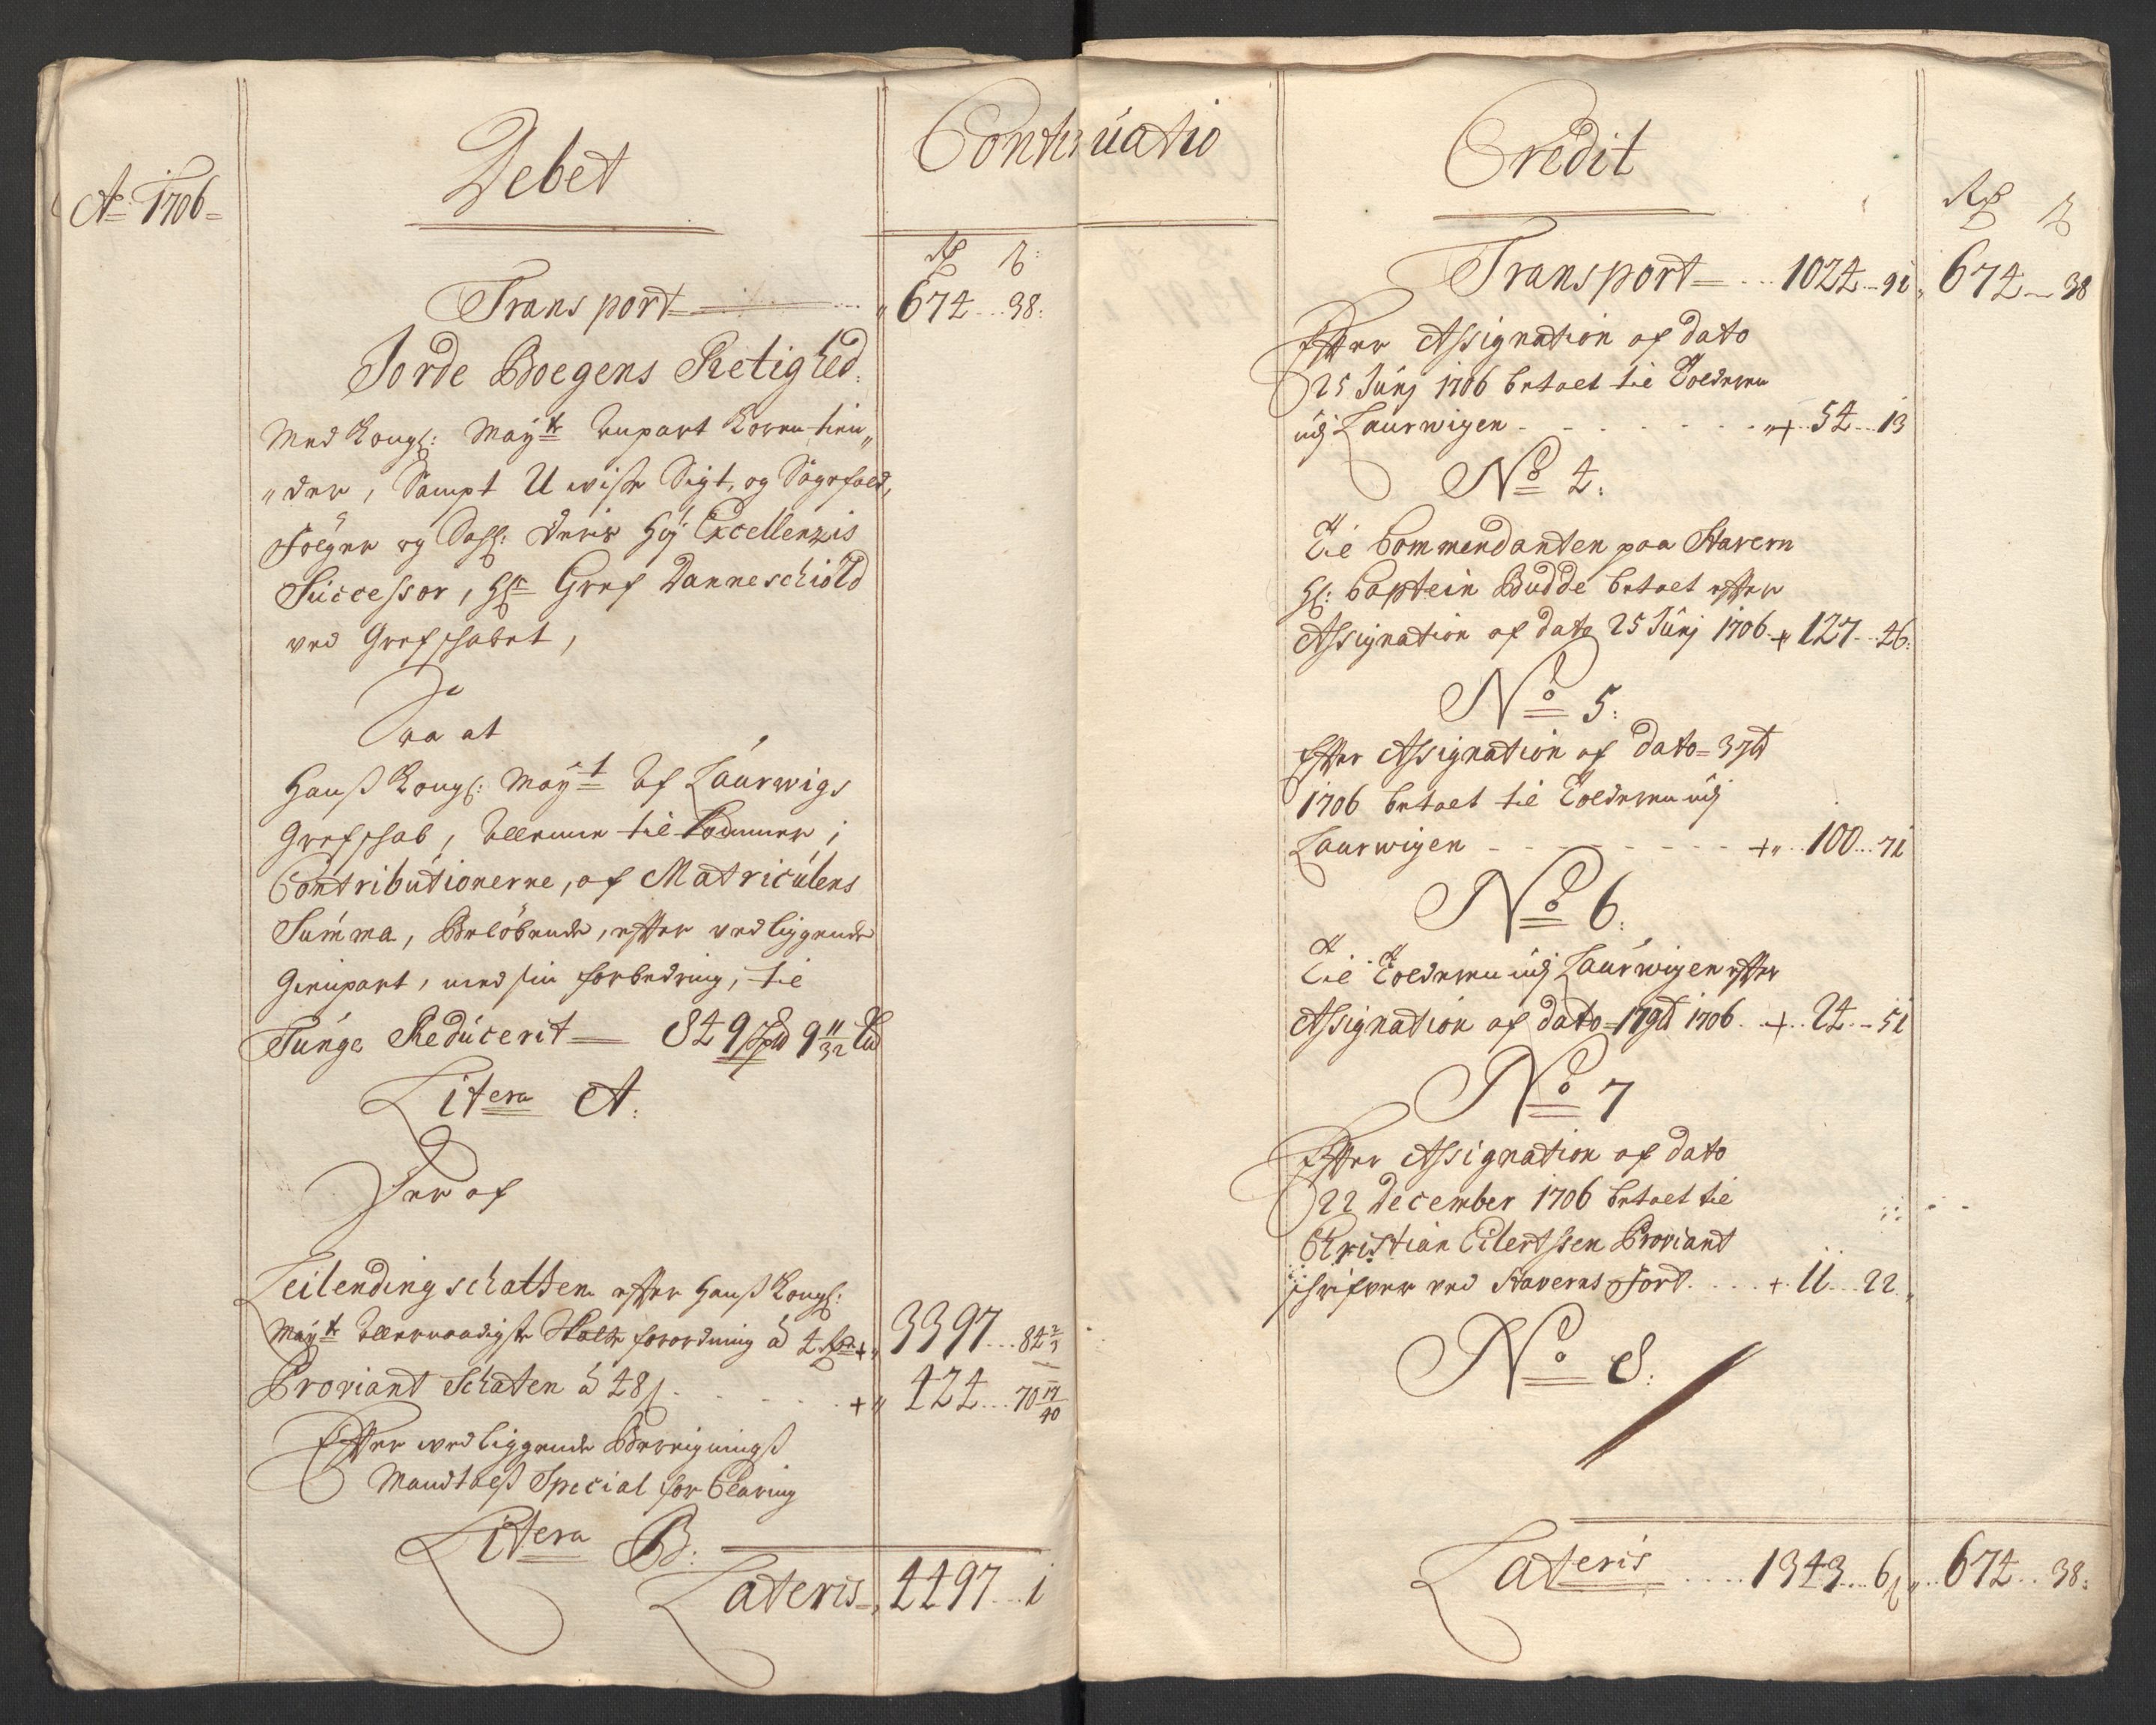 Ao 1706
Debet
Continuatio
Rd ß
Transport 674 38
Jorde Boegens Retighed
Med Kongl: Mayts Anpart Koren tien
der, Sampt Uwiße Sigt, og Sagefald,
følger og Sahl: deris Høy Excellenzis
Successor, Hr Gref Danneschiold
ved Grefschabet,
Saa at
Hanß Kongl: Mayt af Laurwigs
Grefschab, allene tilkommer,
Contributionerne, af Matriculens
Summa, Beløbende, efter vedliggende
Genpart, med sin forbedring, til
Tunge Reducerit 849 Spd 9 11/32 Lud
Litera A:
Der af
Leilending schatten efter Hanß Kongl:
Mayts Allernaadigste Skatte forordning à 4 Rd + 3397 84 2/3
Proviant Schaten à 48 ß + 424 70 17/40
Efter ved liggende Beregnings
Mandtalß Special for Claring
Litera B:
Lateris 4497 1
Credit
Rd ß
Transport 1024 91 674 38
Efter Assignation af dato
25 Junj 1706 betalt til Tolderen
udj Laurwigen + 54 13
No 4:
Til Commendanten paa Stavern
Hr: Captein Budde betalt efter
Assignation af dato 25 Junj 1706 + 127 46
No 5:
Efter Assignation af dato 3 7bt
1706 betalt til Tolderen udj
Laurwigen + 100 71
No 6:
Til Tolderen udj Laurwigen efter
Assignation af dato 17 9bt 1706 + 24 51
No 7
Efter Assignation af dato
22 December 1706 betalt til
Christian Eilertssen Proviant
schrifver ved Staverns Fort + 11 22
No 8:
Lateris 1343 6 ß 674 38